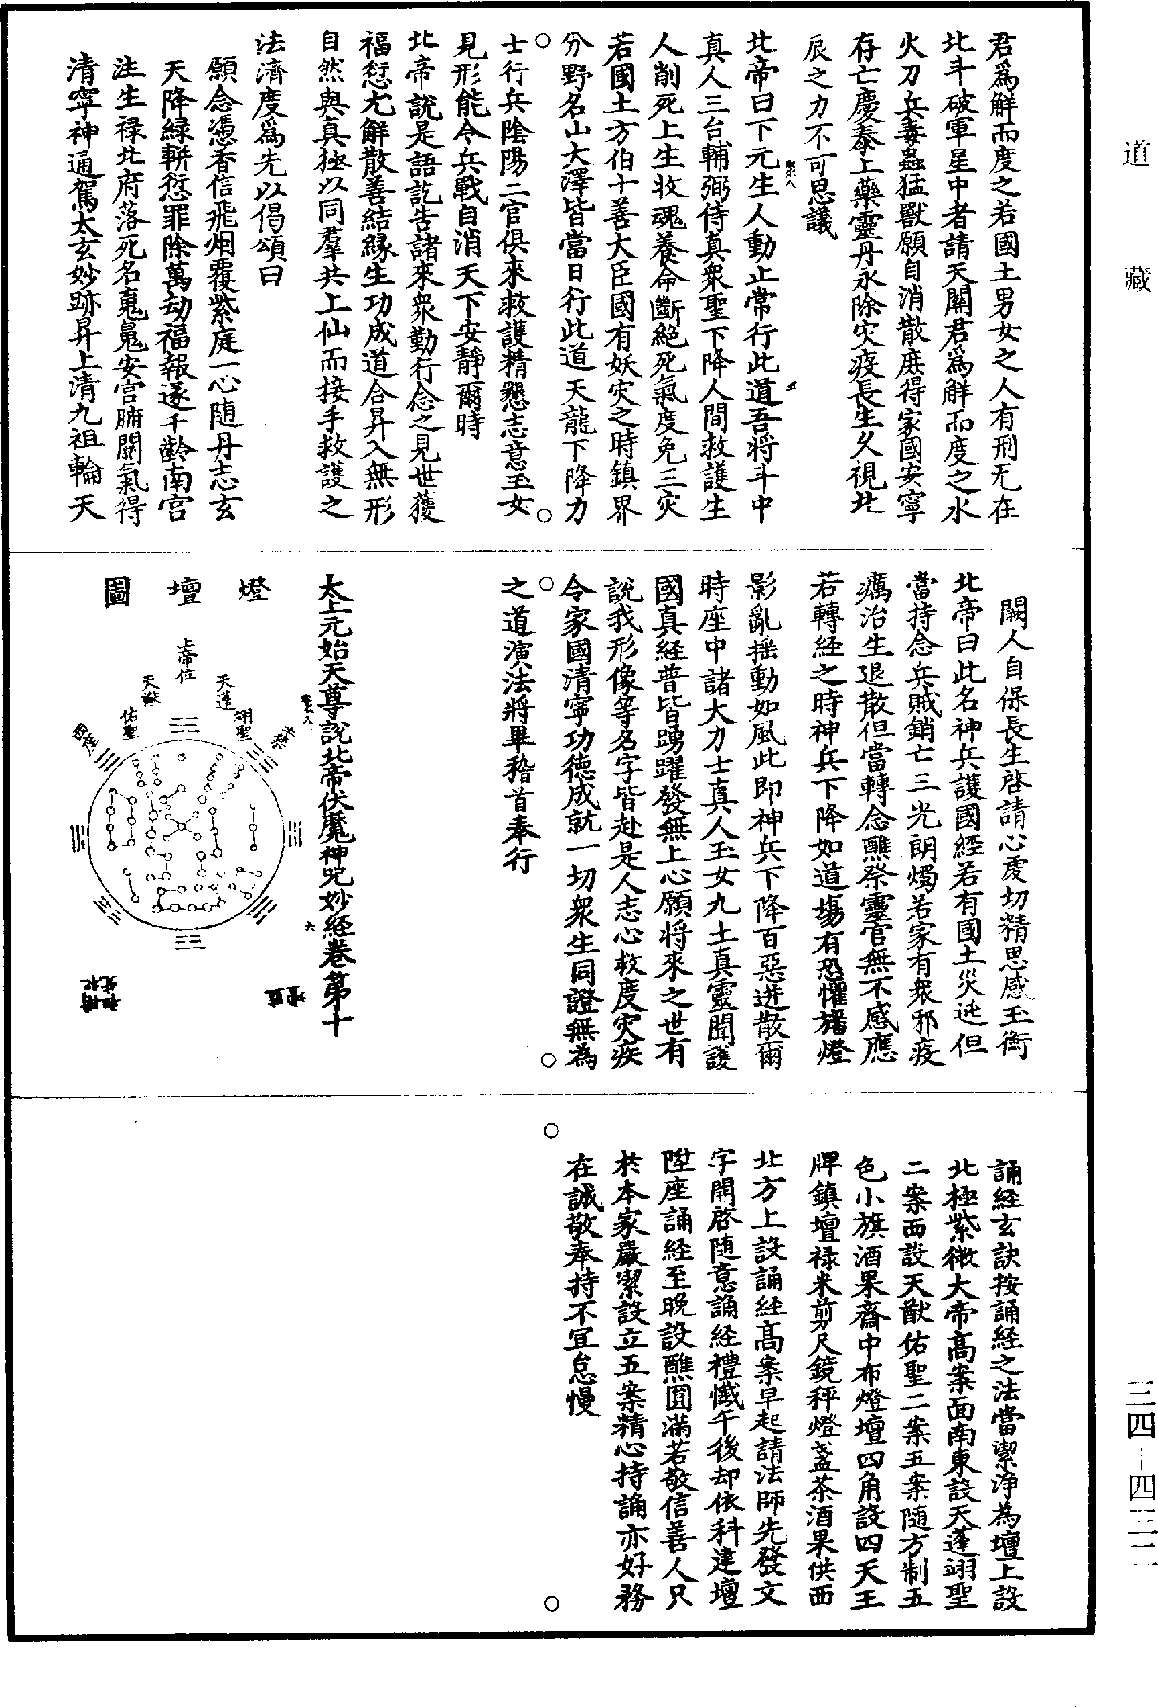 道藏
三四-四三二
君爲解而度之若國土男女之人有刑厄在
北斗破軍星中者請天關君爲解而度之水
火刀兵毒蟲猛獸願自消散庶得家國安寧
存亡慶泰上藥靈丹永除灾疫長生久視北
辰之力不可思議
北帝曰下元生人動止常行此道吾將斗中
真人三台輔弼侍真衆聖下降人間救護生
人削死上生收魂養命斷絕死氣度免三灾
若國土方伯十善大臣國有妖灾之時鎮界
分野名山大澤皆當日行此道天龍下降力
士行兵陰陽二官俱來救護精懇志意玉女
見形能令兵戰自消天下安靜爾時
北帝說是語訖告諸來衆勤行念之見世獲
福愆尤解散善結緣生功成道合昇入無形
自然與真極以同羣共上仙而接手救護之
法濟度爲先以偈頌曰
願念憑香信飛烟覆紫庭一心随丹志玄
天降綠軿愆罪除萬劫福報遂千齡南宮
注生禄北府落死名䰟魄安宮腑關氣得
清寧神通駕太玄妙跡昇上清九祖輪天
關人自保長生啓請心虔切精思感玉衡
北帝曰此名神兵護國經若有國土災迍但
當持念兵賊銷亡三光朗燭若家有衆邪疫
癘治生退散但當轉念醮祭靈官無不感應
若轉經之時神兵下降如道場有恐懼旛燈
影亂摇動如風此即神兵下降百惡迸散爾
時座中諸大力士真人玉女九土真靈聞護
國真經普皆踴躍發無上心願將來之世有
說我形像等名字皆赴是人志心救度灾疾
令家國清寧功德成就一切衆生同證無為
之道演法將畢稽首奉行
太上元始天尊說北帝伏魔神呪妙經卷第十
燈壇圖
上帝位
天蓬
天猷
翊聖
佑聖
誦經玄訣按誦經之法當潔淨為壇上設
北極紫微大帝高案面南東設天蓬翊聖
二案西設天猷佑聖二案五案隨方制五
色小旗酒果齋中布燈壇四角設四天王
牌鎮壇禄米剪尺鏡秤燈盞茶酒果供西
北方上設誦經高案早起請法師先發文
字開啓随意誦經禮懺午後却依科建壇
陞座誦經至晚設醮圓滿若敬信善人只
於本家嚴潔設立五案精心持誦亦好務
在誠敬奉持不宜怠慢